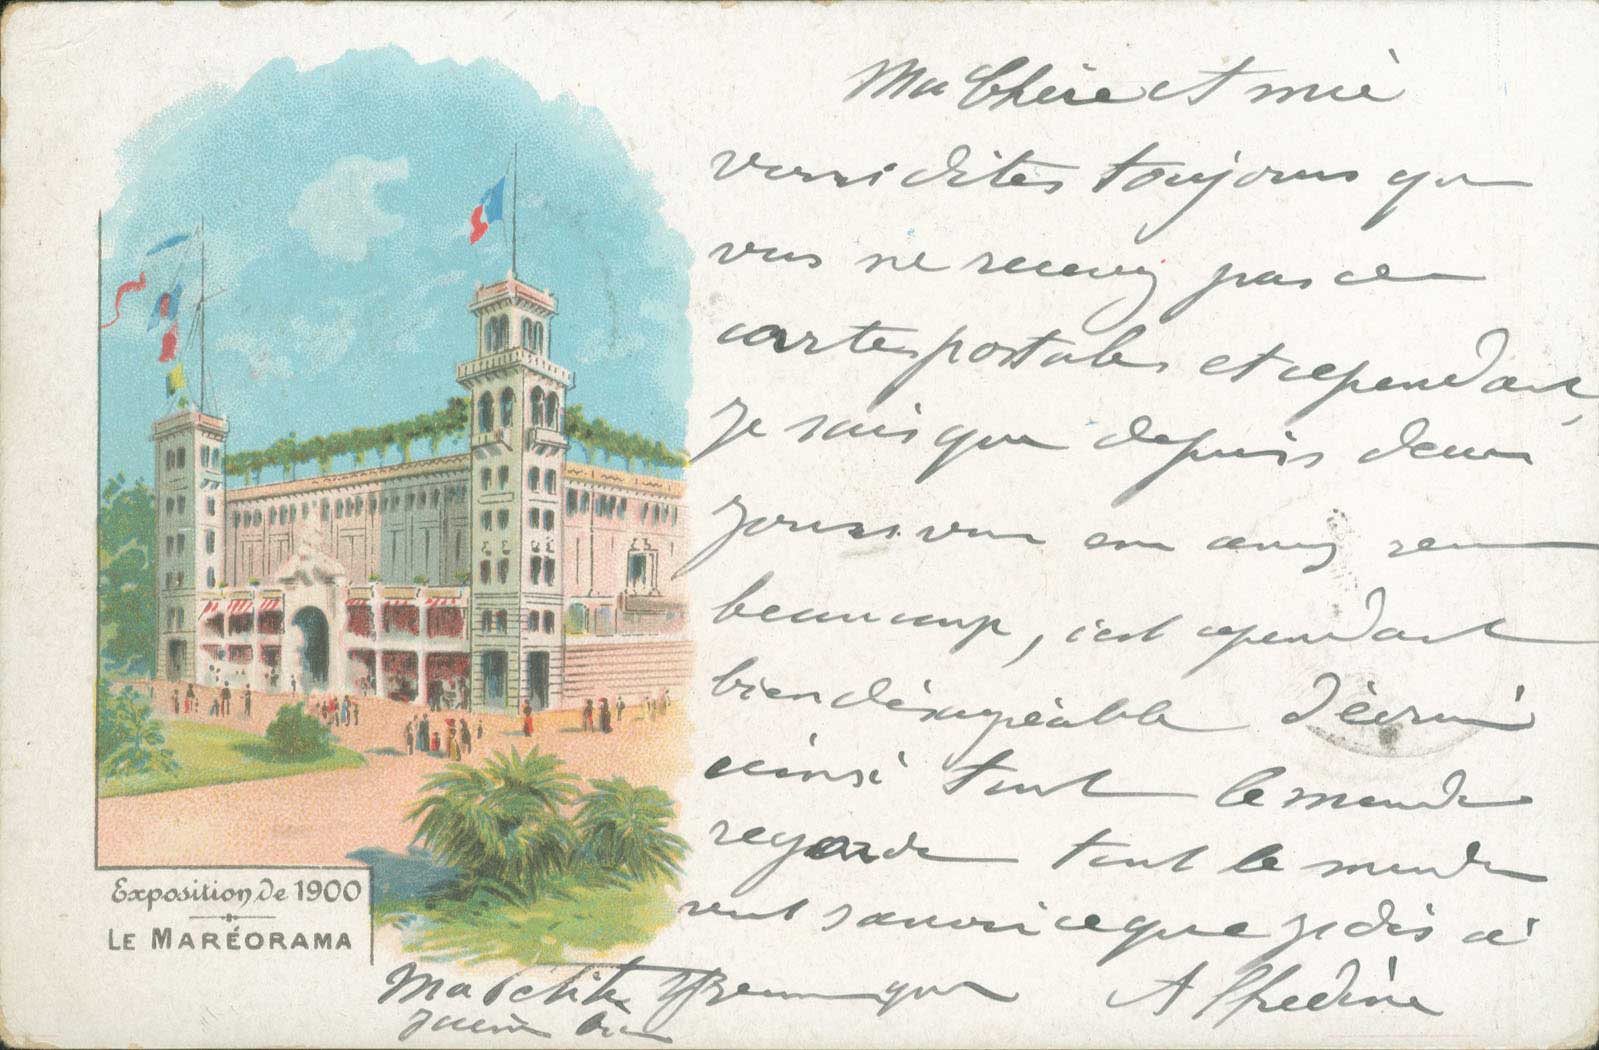 Ma Chère et mie
vous dites toujours que
vous ne recevez pas de
cartes postales et cependant
je sais que depuis deux
jours vous en avez reçu
beaucoup, c'est cependant
bien désagréable d'écrire
ainsi tout le monde
regarde tout le monde
veut savoir ce que je dis à
Ma Petite
Alphedine
Exposition de 1900
LE MARÉORAMA